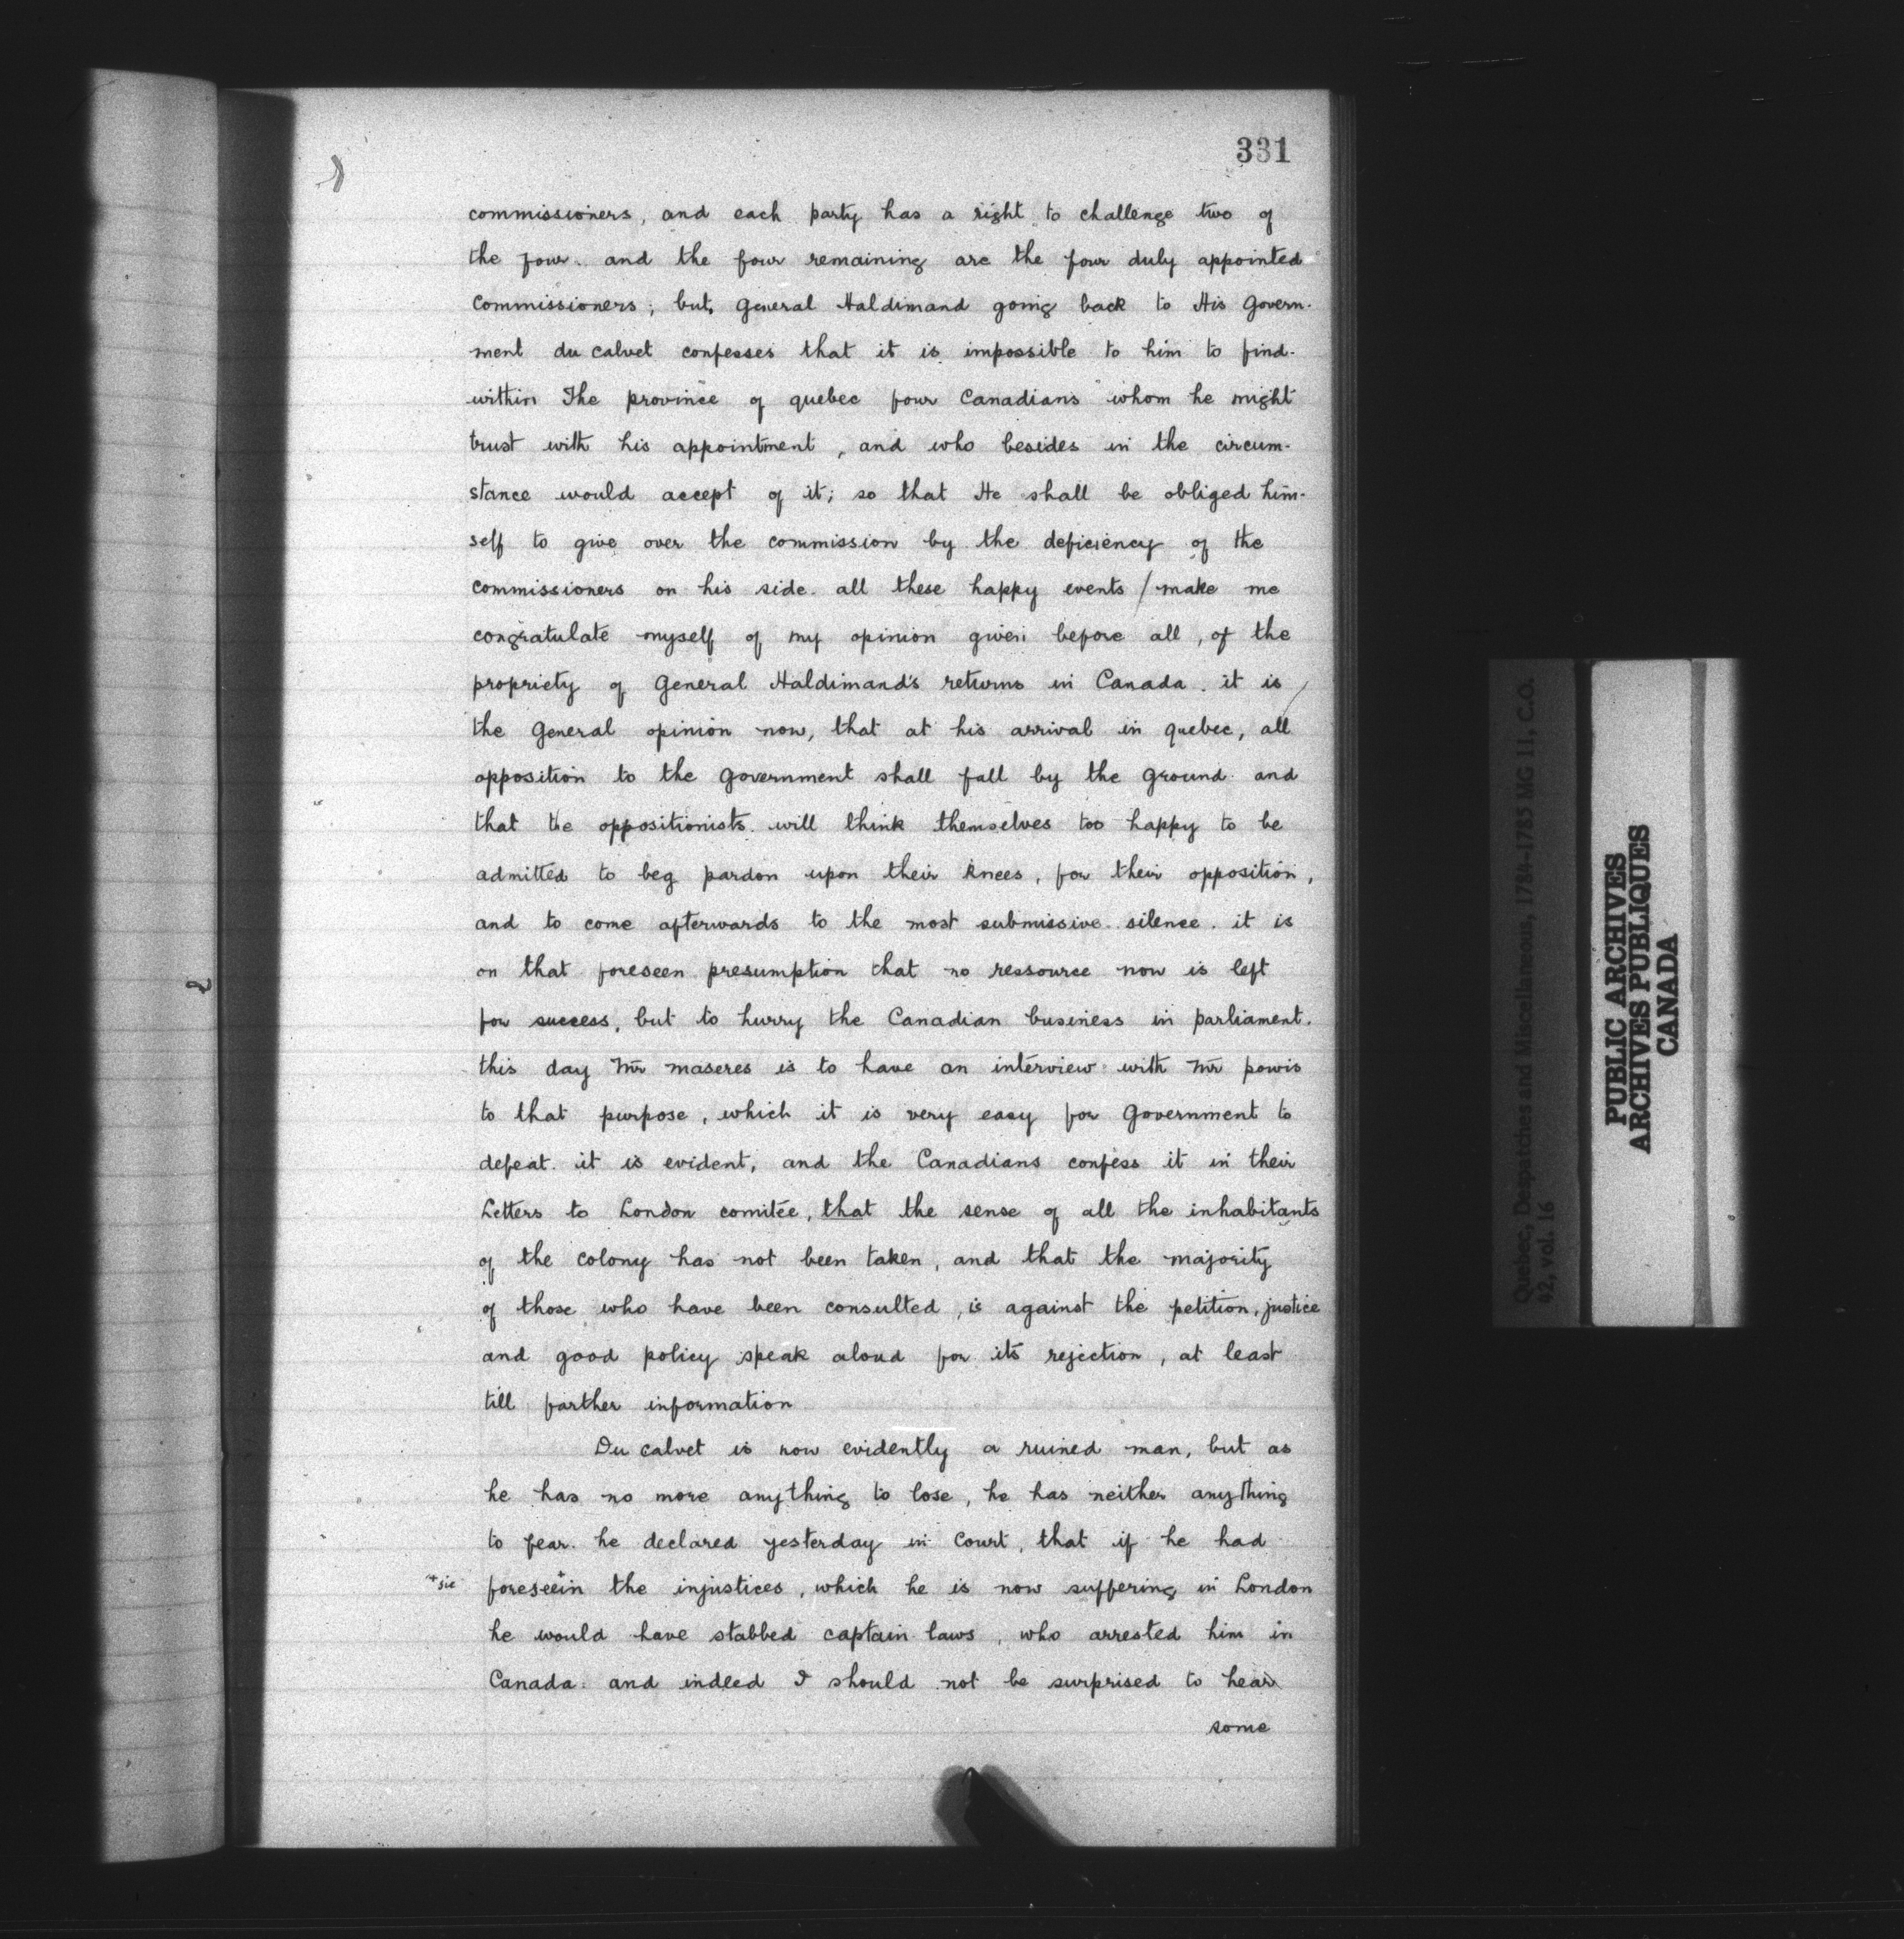 331
commissioners, and each party has a right to challenge two of
the four. and the four remaining are the four duly appointed
commissioners; but, general Haldimand going back to His govern-
ment du calvet confesses that it is impossible to him to find.
within The province of quebec four Canadians whom he might
trust with his appointment, and who besides in the circum-
stance would accept of it; so that He shall be obliged him-
self to give over the commission by the deficiency of the
commissioners on his side. all these happy events / make me
congratulate myself of my opinion given before all, of the
propriety of general Haldimand's returns in Canada. it is /
the general opinion now, that at his arrival in quebec, all
opposition to the government shall fall by the ground. and
that the oppositionists. will think themselves too happy to be
admitted to beg pardon upon their knees, for their opposition,
and to come afterwards to the most submissive silence. it is
on that foreseen presumption that no ressource now is left
for success, but to hurry the Canadian business in parliament.
this day Mr maseres is to have an interview with Mr powis
to that purpose, which it is very easy for government to
defeat. it is evident, and the Canadians confess it in their
Letters to London comitée, that the sense of all the inhabitants
of the colony has not been taken, and that the majority
of those who have been consulted, is against the petition, justice
and good policy speak aloud for its rejection, at least
till farther information
Du calvet is now evidently a ruined man, but as
he has no more anything to lose, he has neither anything
to fear. he declared yesterday in court, that if he had
+ sic foreseein+ the injustices, which he is now suffering in London
he would have stabbed captain laws, who arrested him in
Canada. and indeed I should not be surprised to hear
some
Quebec, Despatches and Miscellaneous, 1784-1785 MG 11, C.O.
42, vol. 16
PUBLIC ARCHIVES
ARCHIVES PUBLIQUES
CANADA